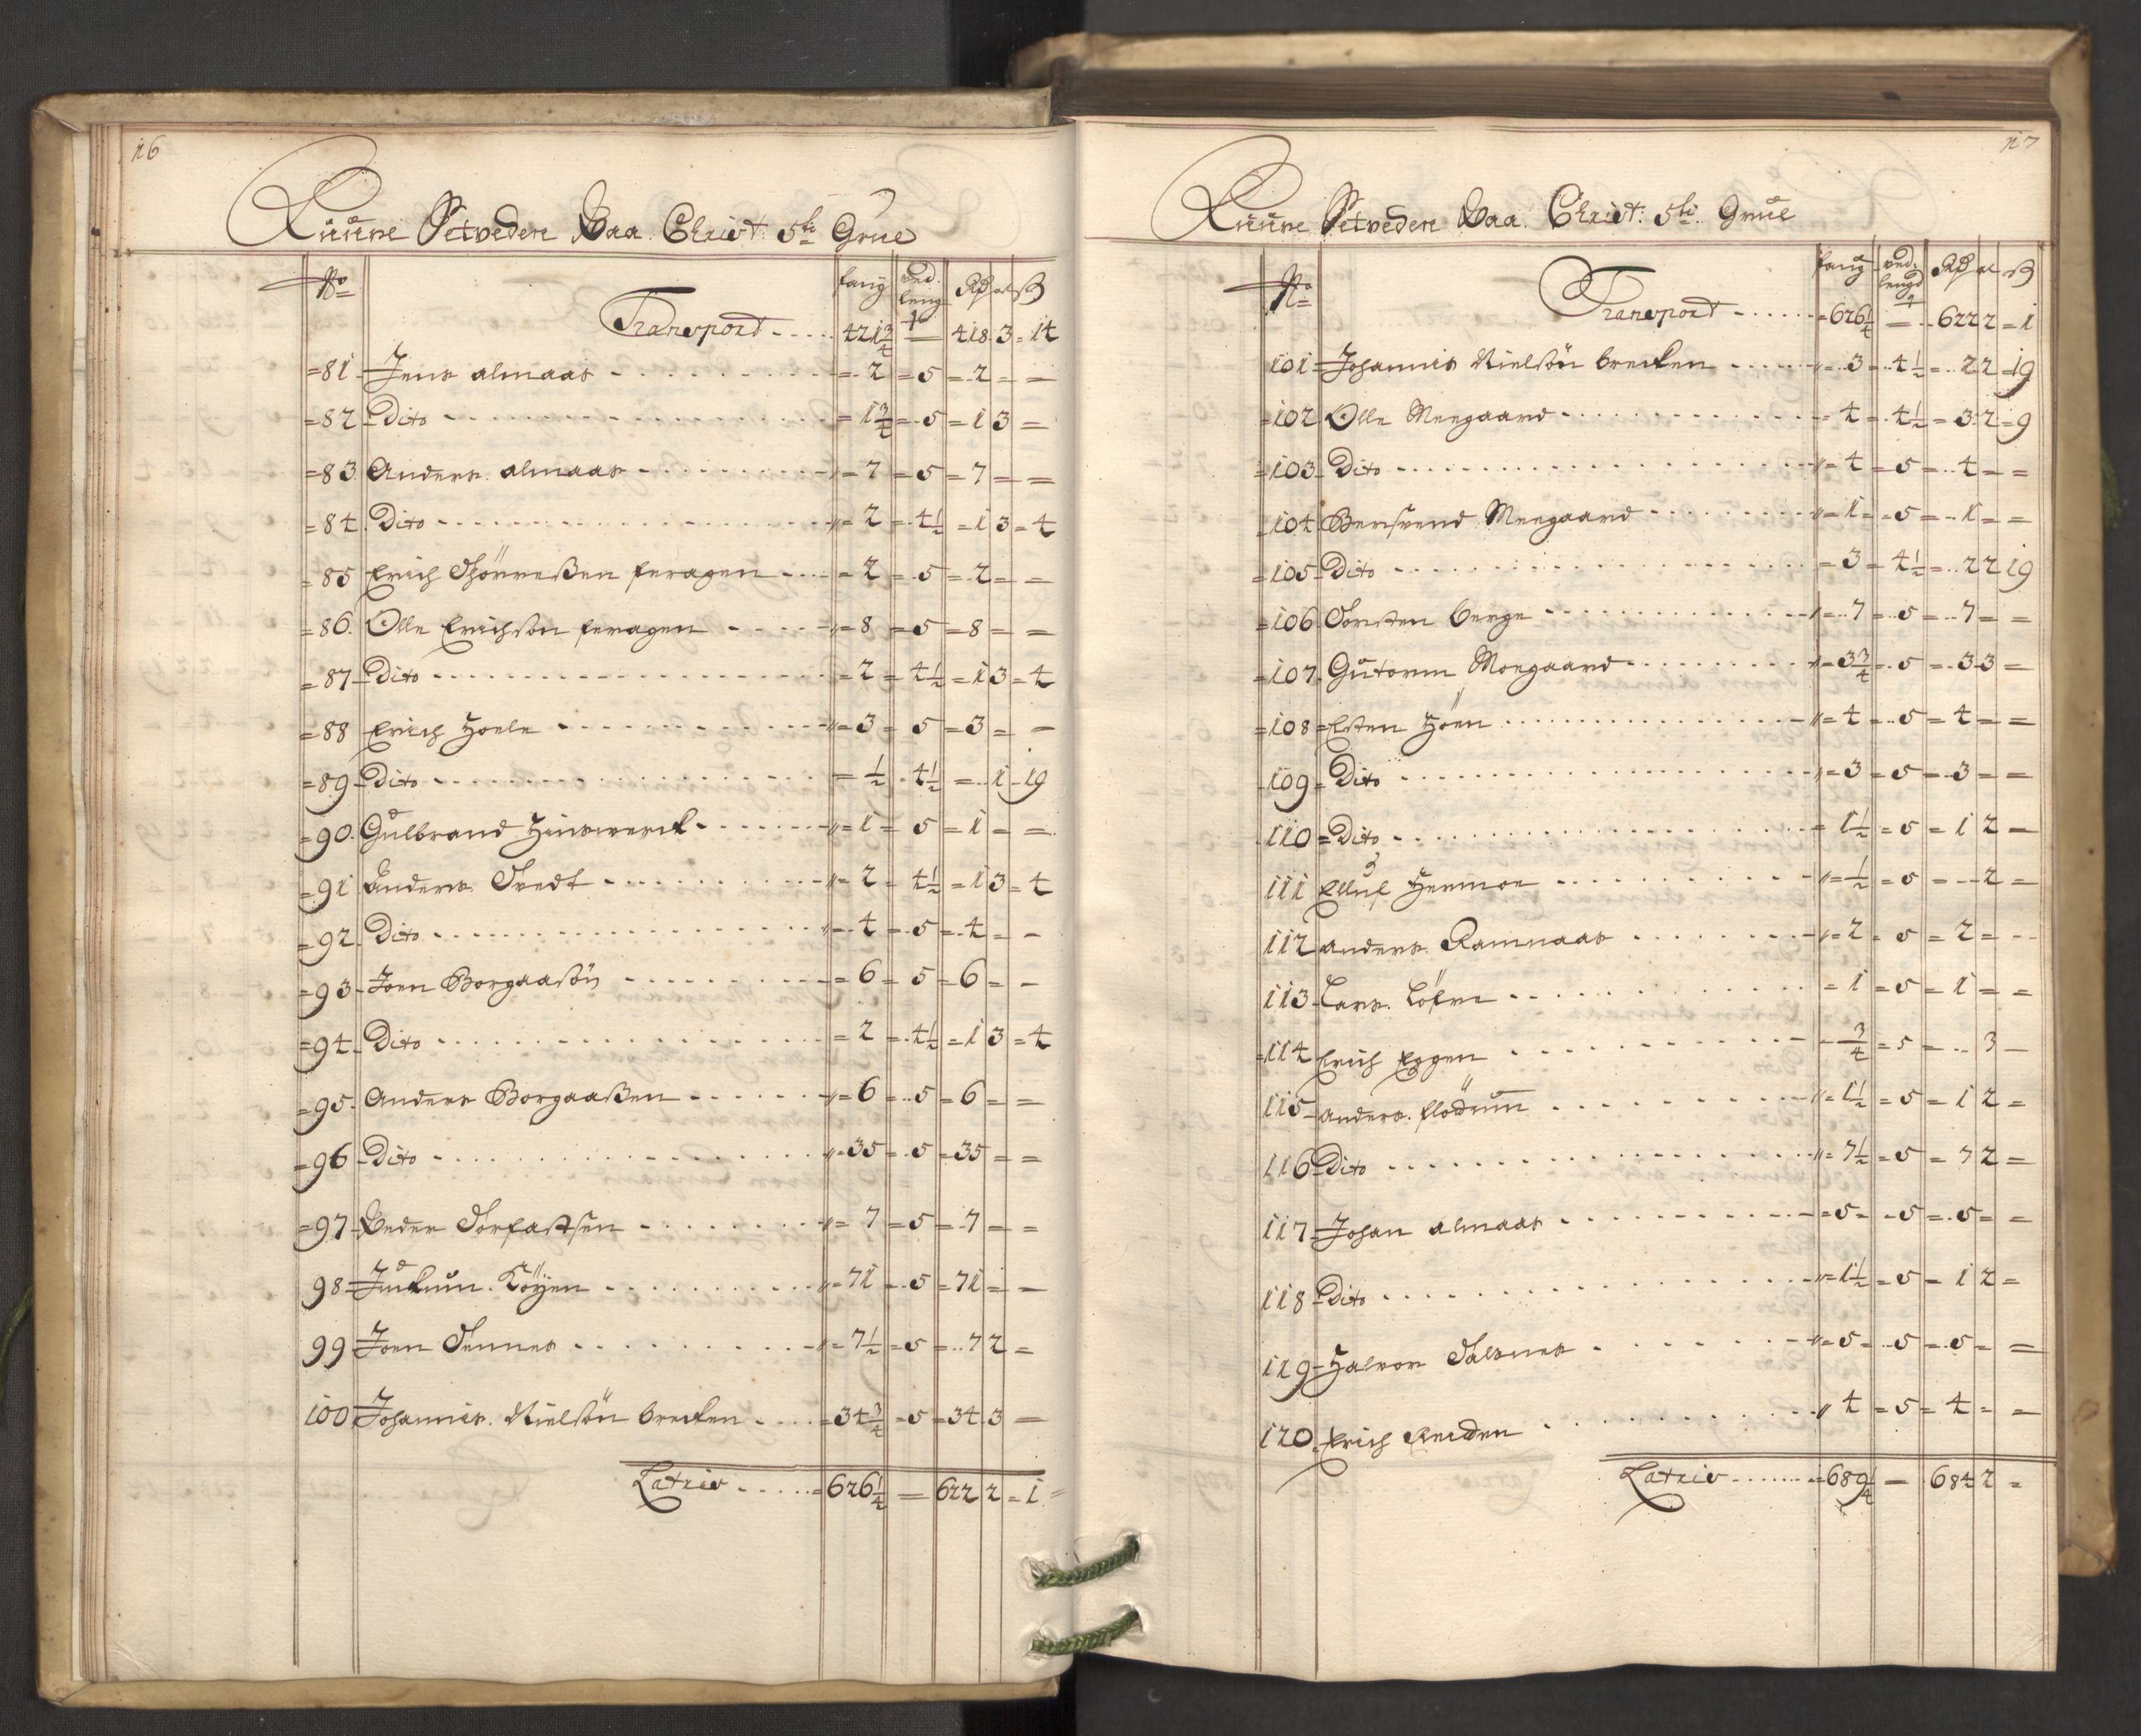 16
Ruune Setvedere Paa Christ: 5ti Grue
No
fang ved leng Rdr ort ß
Transport - - - - - 421 3/4 — 418 3 = 14
=81 Jens almaas - - - = 2 = 5 = 2 = =
=82 Dito - - - = 1 3/4 = 5 = 1 3 =
=83 Anders almaas - - - = 7 = 5 = 7 = =
=84 Dito - - - = 2 = 4 1/2 = 1 3 = 4
=85 Erich Feragen - - - = 2 = 5 = 2 = =
=86 Olle Erichson Feragen - - - = 8 = 5 = 8 = =
=87 Dito - - - = 2 = 4 1/2 = 1 3 = 4
=88 Erich - - - = 3 = 5 = 3 = =
=89 Dito - - - = 1/2 = 4 1/2 = 1 = 19
=90 Gulbrand - - - = 1 = 5 = 1 = =
=91 Anders Tvedt - - - = 2 = 4 1/2 = 1 3 = 4
=92 Dito - - - = 4 = 5 = 4 = =
=93 Joen Borgaasön - - - = 6 = 5 = 6 = =
=94 Dito - - - = 2 = 4 1/2 = 1 3 = 4
=95 Anders Borgaaßen - - - = 6 = 5 = 6 = =
=96 Dito - - - = 35 = 5 = 35 = =
=97 Peder Torfastsen - - - = 7 = 5 = 7 = =
98 - - - = 71 = 5 = 71 = =
99 Joen Tennes - - - = 7 1/2 = 5 = 7 2 =
100 Johannis Nielsön brecken - - - = 34 3/4 = 5 = 34 3 =
Latris - - - = 626 1/4 — 622 2 = 1
17
Ruune Setvedere Paa Christ: 5ti Grue
No
fang ved lengd Rdr ort ß
Transport - - - = 626 1/4 — 622 2 = 1
101 Johannis Nielsön brecken - - - = 3 = 4 1/2 = 2 2 = 19
=102 Olle Moegaard - - - = 4 = 4 1/2 = 3 2 = 9
=103 Dito - - - = 4 = 5 = 4 = =
=104 Bersvend Moegaard - - - = 1 = 5 = 1 = =
=105 Dito - - - = 3 = 4 1/2 = 2 2 19
=106 Torsten berge - - - = 7 = 5 = 7 = =
=107 Gutorm Moegaard - - - = 3 3/4 = 5 = 3 3 =
=108 Esten Höen - - - = 4 = 5 = 4 = =
109 Dito - - - = 3 = 5 = 3 = =
110 Dito - - - = 1 1/2 = 5 = 1 2 =
111 Elluf Hermoe - - - = 1/2 = 5 = 2 =
112 anders Ramnaas - - - = 2 = 5 = 2 = =
113 Lars - - - = 1 = 5 = 1 = =
=114 Erich Eggen - - - = 3/4 = 5 = 3 =
115 anders flödum - - - = 1 1/2 = 5 = 1 2 =
116 Dito - - - = 7 1/2 = 5 = 7 2 =
117 Johan almaas - - - = 5 = 5 = 5 = =
118 Dito - - - = 1 1/2 = 5 = 1 2 =
119 Halvor - - - = 5 = 5 = 5 = =
120 Erich - - - = 4 = 5 = 4 = =
Latris - - - = 689 1/4 — 684 2 =